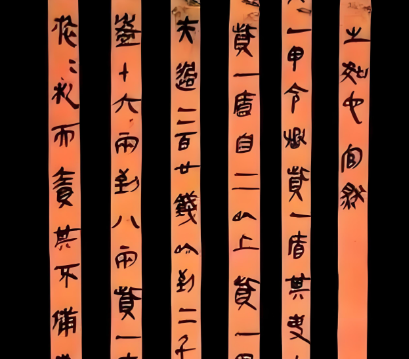 之如它官然
一甲令丞貲一盾其吏
貲一盾自二以上貲一
夫過二百廿錢以到二千
盈十六兩到八兩貲一
而責其不備